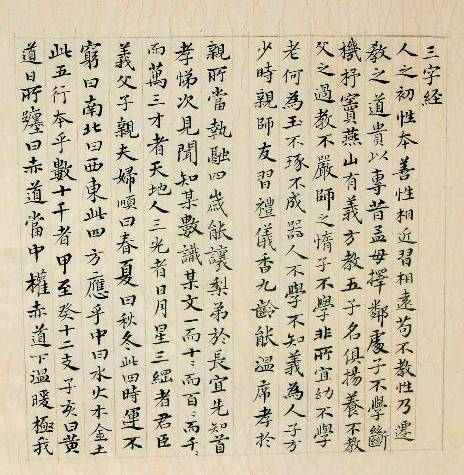 三字经
人之初性本善性相近習相遠苟不教性乃遷
教之道貴以專昔孟母擇鄰處子不學斷
機杼竇燕山有義方教五子名俱揚養不教
父之過教不嚴師之惰子不學非所宜幼不學
老何為玉不琢不成器人不學不知義為人子方
少時親師友習禮儀香九齡能温席孝於
親所當執融四歲能讓梨弟於長宜先知首
孝悌次見聞知某數識某文一而十〻而百〻而千〻
而萬三才者天地人三光者日月星三綱者君臣
義父子親夫婦順曰春夏曰秋冬此四時運不
窮曰南北曰西東此四方應乎中曰水火木金土
此五行本乎數十干者甲至癸十二支子亥曰黄
道日所躔曰赤道當中權赤道下温暖極我